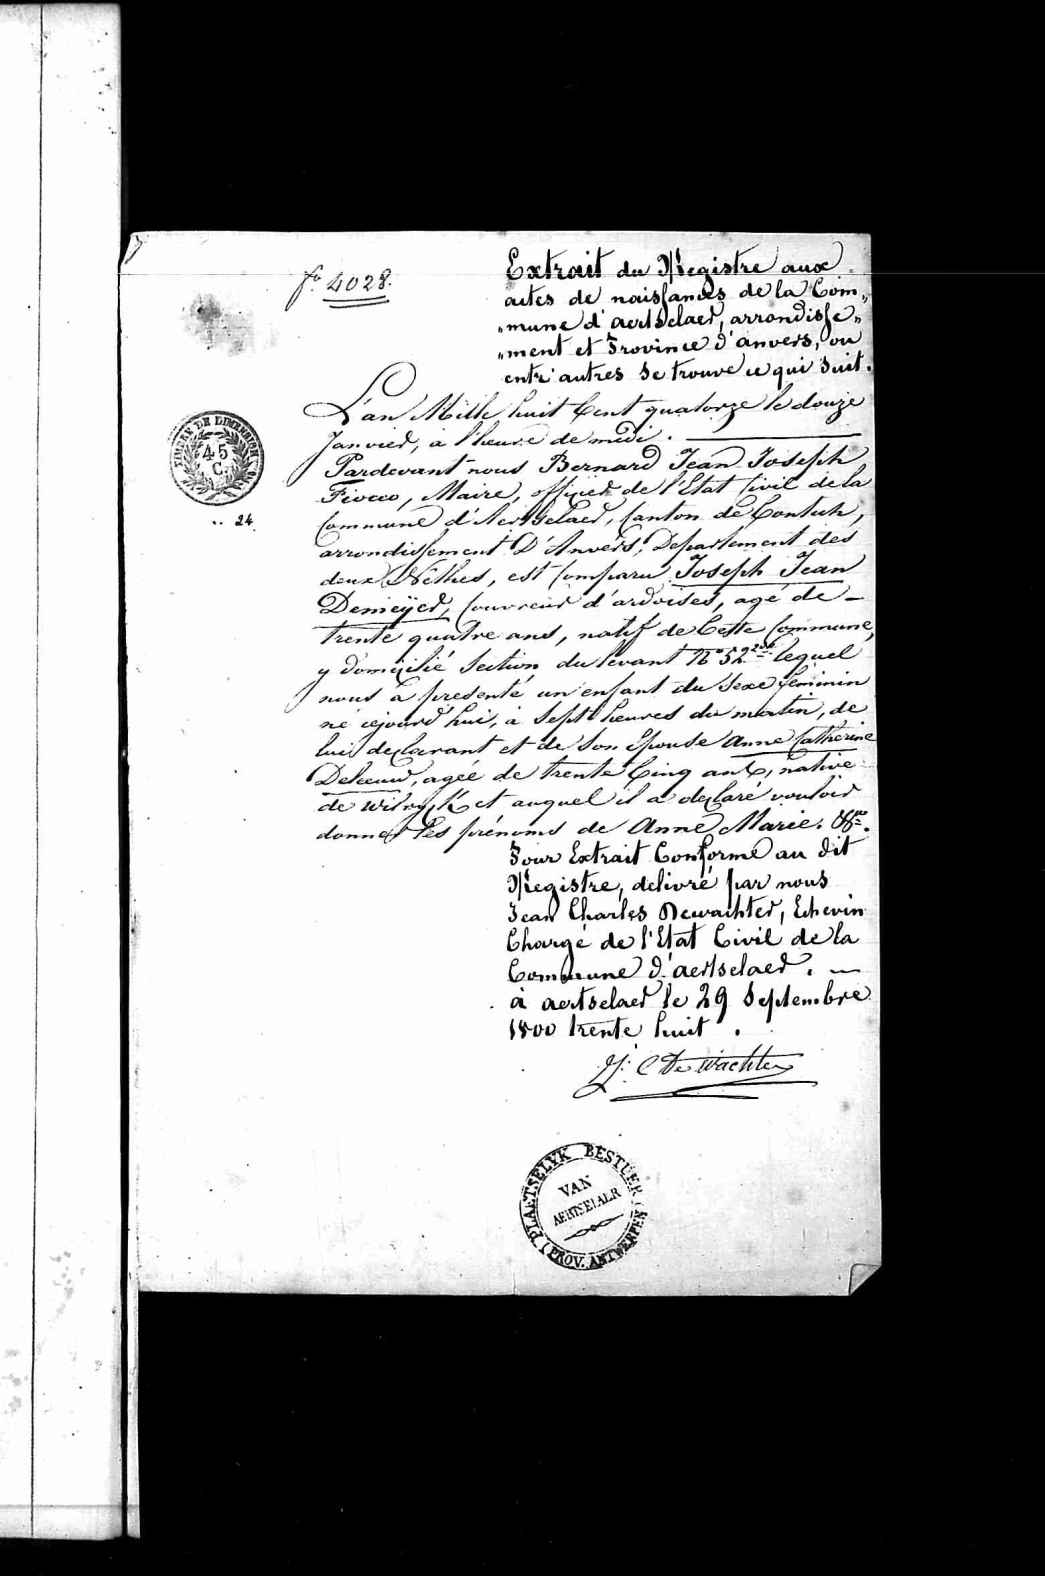 fo. 4028.
Extrait du Registre aux
actes de naissances de la Com„
„mune d'aertselaer, arrondisse„
„ment et Province d'anvers, ou
entr'autres se trouve ce qui suit.
L'an Mille huit Cent quatorze le douze
Janvier, à l'heure de midi.
Pardevant nous Bernard Jean Joseph
Fiocco, Maire, officier de l'Etat Civil de la
Commune d'Aertselaer, Canton de Contich,
arrondissement D'Anvers, Département des
deux Nèthes, est Comparu Joseph Jean
Demeÿer, Couvreur d'ardoises, agé de
trente quatre ans, natif de Cette Commune,
y domicilié Section du levant No 52 lequel
nous a presenté un enfant du Sexe feminin
né cejourd'hui, à Sept heures du matin, de
lui declarant et de Son Epouse Anne Catherine
Deleeuw, agée de trente Cinq ans, native
de wilryck et auquel il a declaré vouloir
donner les prénoms de Anne Marie. &c.
Pour Extrait Conforme au dit
Registre, delivré par nous
Jean Charles Dewachter, Echevin
Chargé de l'Etat Civil de la
Commune d'aertselaer.
à aertselaer le 29 Septembre
1800 trente huit.
J. C De Wachter
TIMBRE DE DIMENSION
45
C.
24
PLAETSELYK BESTUER
VAN
AERTSELAER
(PROV. ANTWERPEN)